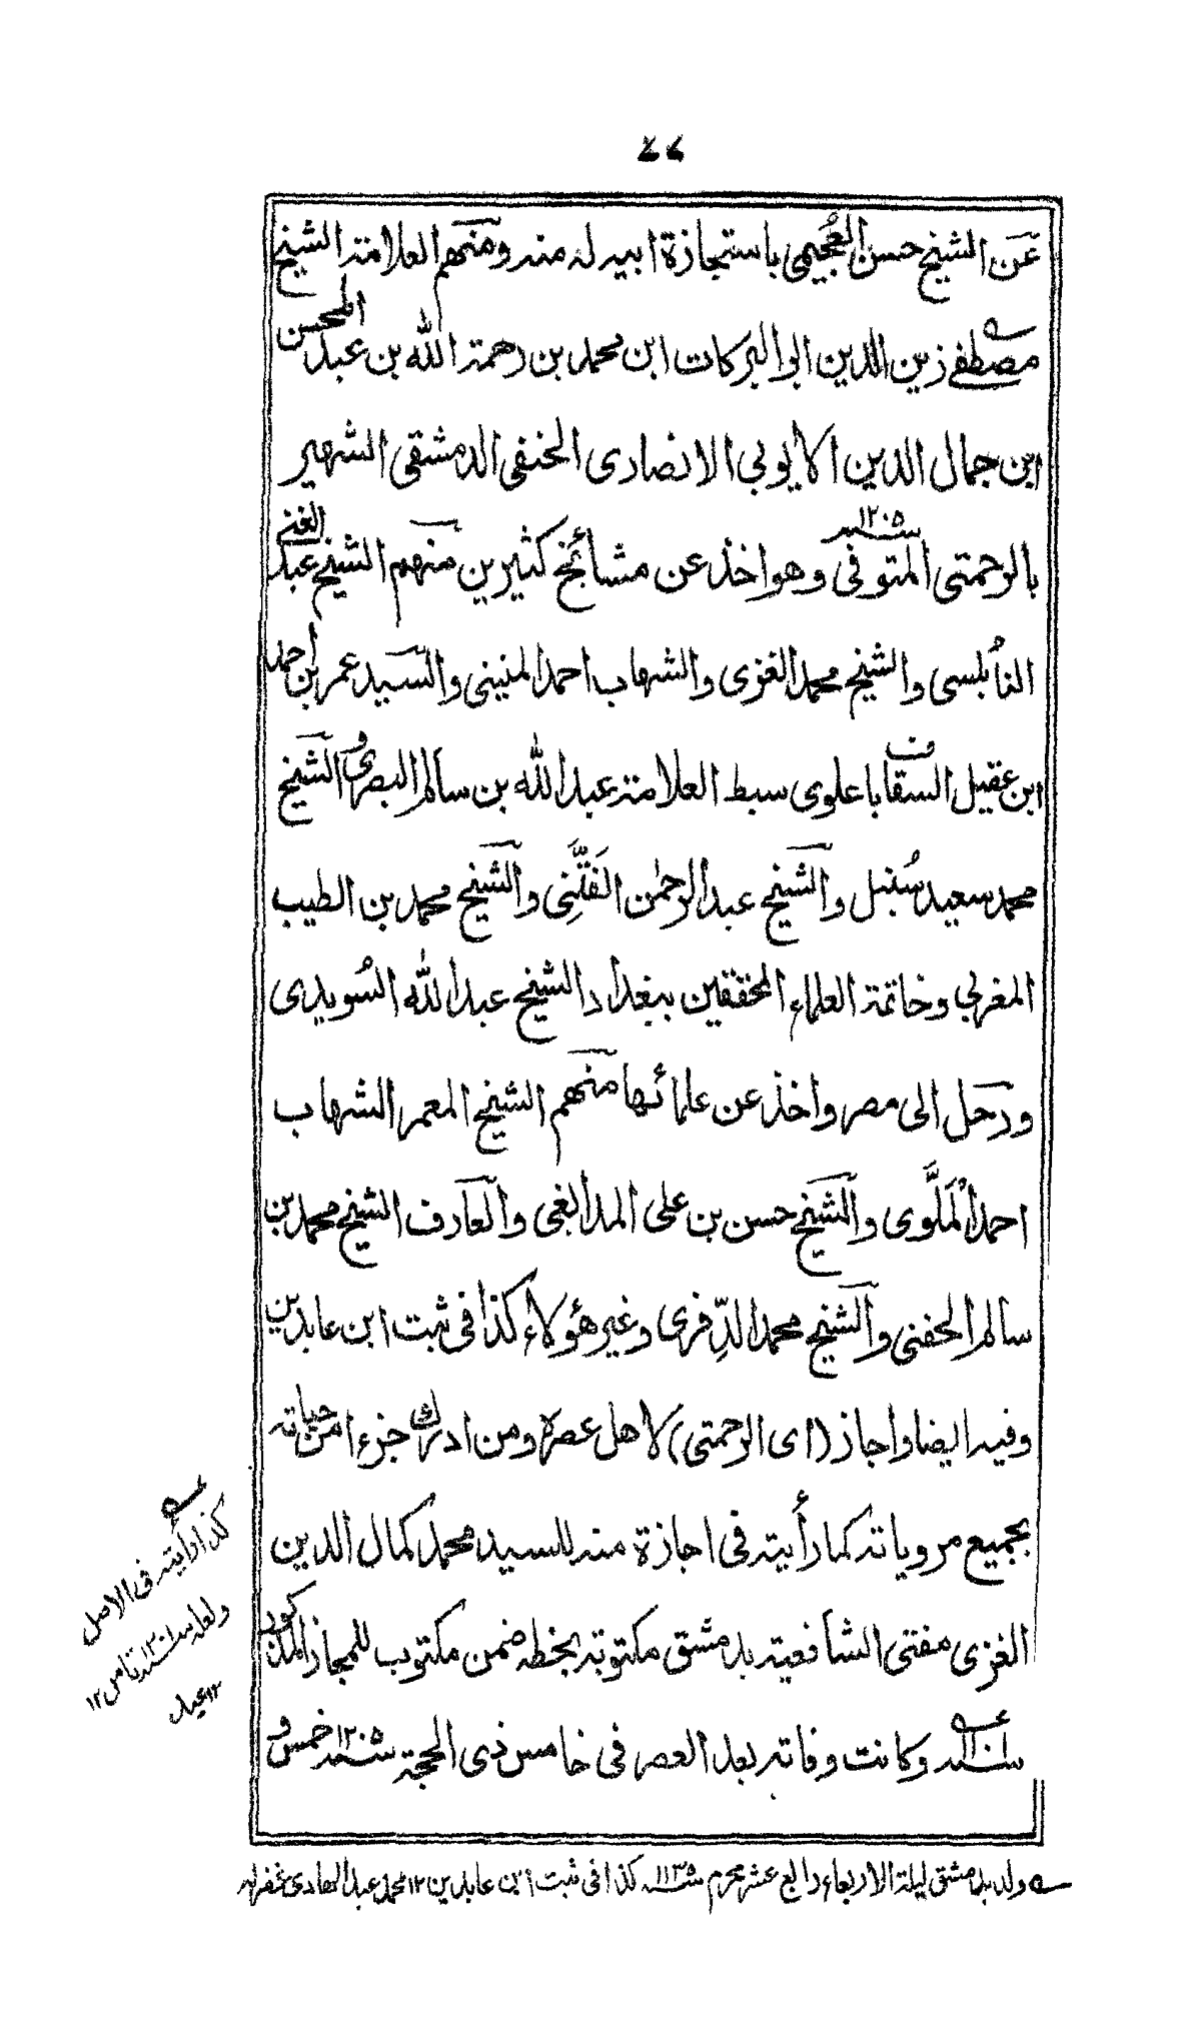 ٤٨
عَن الشيخ حسن العُجيمي باستجازة ابيه له منه ومنهم العلامة الشيخ
مصطفے زين الدين ابو البركات ابن محمد بن رحمة الله بن عبد المحسن
ابن جمال الدين الايوبي الانصاری الحنفی الدمشقی الشهير
بالرحمتی المتوفی سنه ١٢٠٥ وهو اخذ عن مشائخ كثيرين منهم الشيخ عبد الغنے
النابُلسی والشيخ محمد الغزی والشهاب احمد المنينی والسيد عمر بن احمد
ابن عقيل السقاف باعلوی سبط العلامة عبد الله بن سالم البصری والشيخ
محمد سعيد سُنبل والشيخ عبد الرحمٰن الفَتَّنِی والشيخ محمد بن الطيب
المغربي وخاتمة العلماء المحققين ببغداد الشيخ عبد الله السُويدی
ورحل الی مصر واخذ عن علمائها منهم الشيخ المعمر الشهاب
احمد الْمَلَّوی والشيخ حسن بن علی المدابغی والعارف الشيخ محمد بن
سالم الحفنی والشيخ محمد الدِّفری وغير هؤلاء كذا فی ثبت ابن عابدين
وفيه ايضا واجاز (ای الرحمتی) لاهل عصره ومن ادرك جزء امن حياته
بجميع مروياته كما رأيته فی اجازة منه للسيد محمد كمال الدين
الغزی مفتی الشافعية بدمشق مكتوبة بخطه ضمن مكتوب للمجاز المذكور
وكانت وفاته بعد العصر فی خامس ذی الحجة سنه ١٢٠٥ خمس و
كذا رأيته فی الاصل
ولعله
ولد بدمشق ليلة الاربعاء رابع عشر محرم سنه ١١٣٥ كذا فی ثبت ابن عابدين ١٢ محمد عبد الهادی غفر له